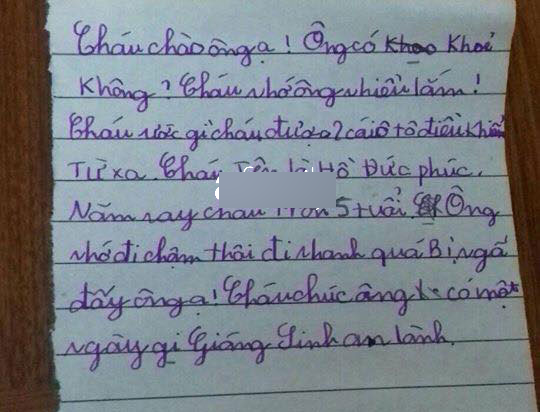 Cháu chào ông ạ! Ông có khoẻ
không? Cháu nhớ ông nhiều lắm!
Cháu ước gì cháu được 2 cái ô tô điều khiển
Từ xa. Cháu Tên là Hồ Đức phúc.
Năm nay cháu 5 tuổi. Ông
nhớ đi chậm thôi đi nhanh quá Bị ngã
đấy ông ạ! Cháu chúc ông có một
ngày gi Giáng Sinh an lành.